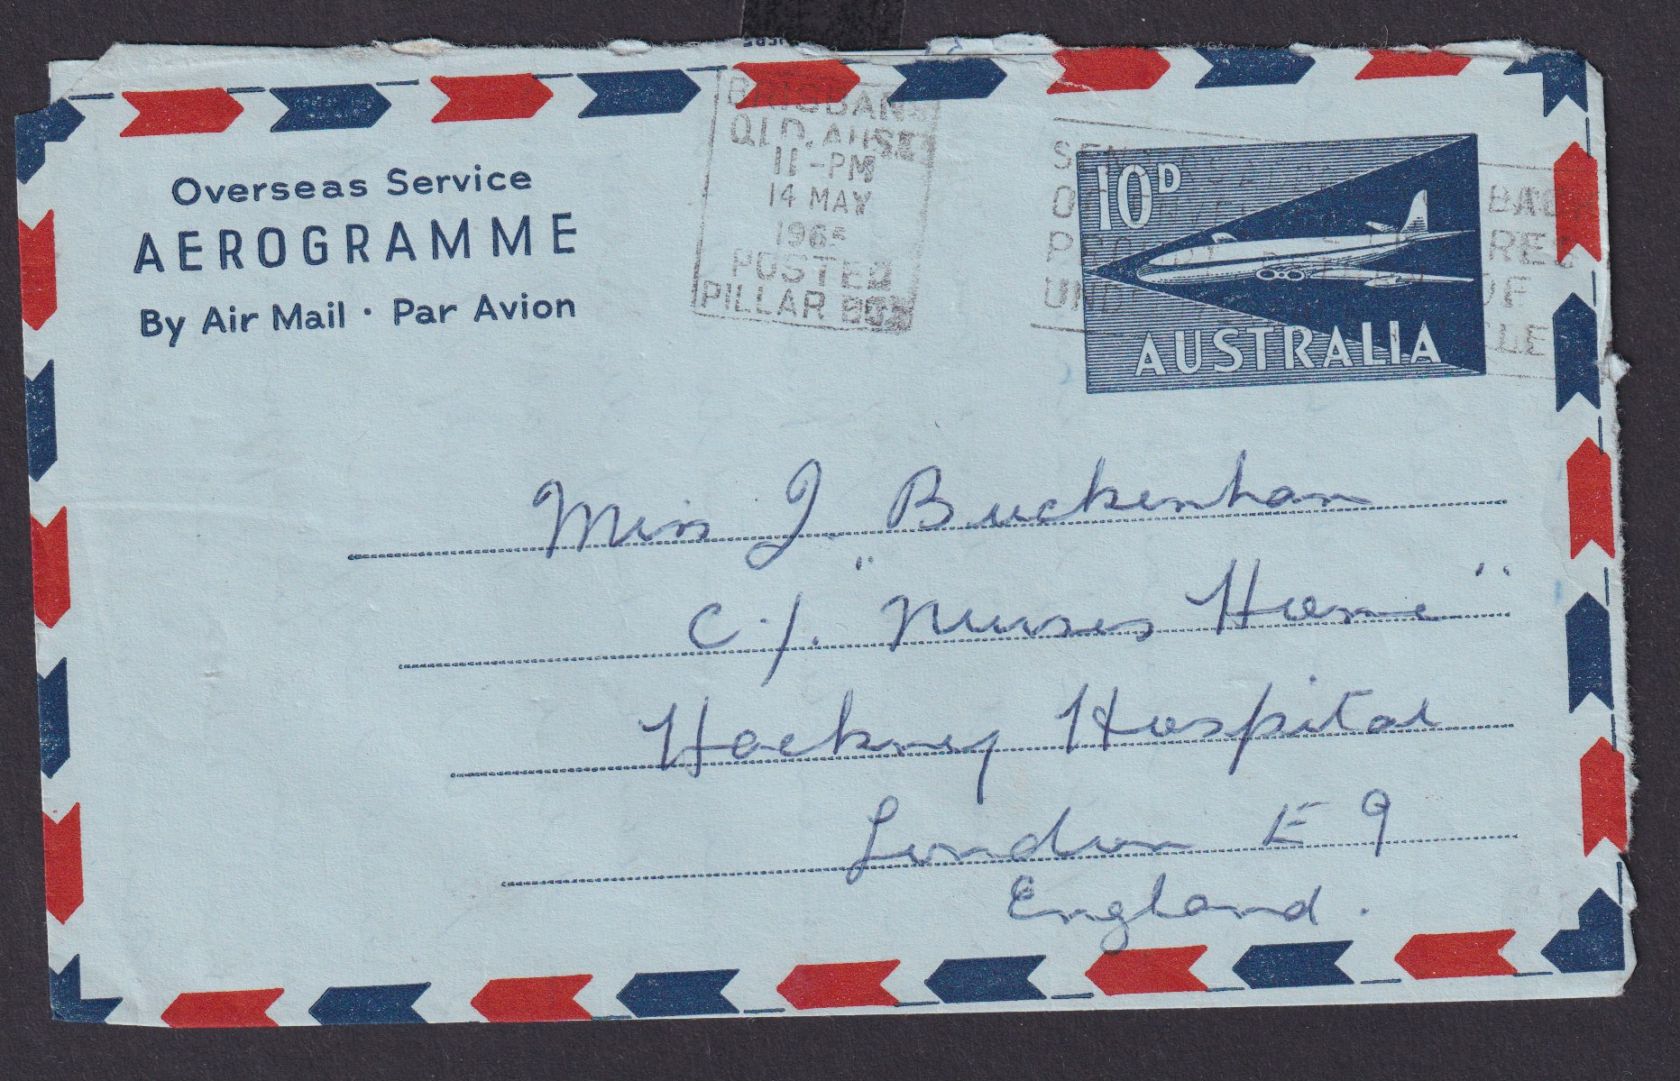 Overseas Service
AEROGRAMME
By Air Mail · Par Avion
QLD. AUST
11-PM
14 MAY
POSTED
PILLAR BOX
10D
AUSTRALIA
Miss J. Buckenham
c/. "Nurses Home"
Hackney Hospital
London E 9
England.